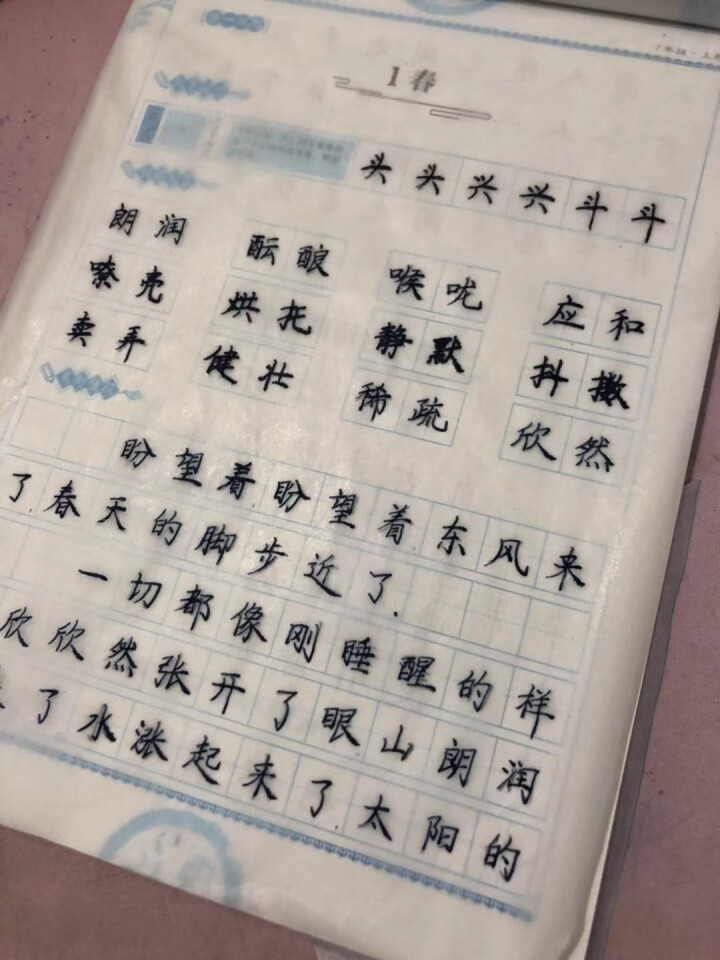 7年级·上册
1 春
头头兴兴斗斗
朗润 酝酿 喉咙 应和
嘹亮 烘托 静默 抖擞
卖弄 健壮 稀疏 欣然
盼望着盼望着东风来
了春天的脚步近了
一切都像刚睡醒的样
欣欣然张开了眼山朗润
了水涨起来了太阳的